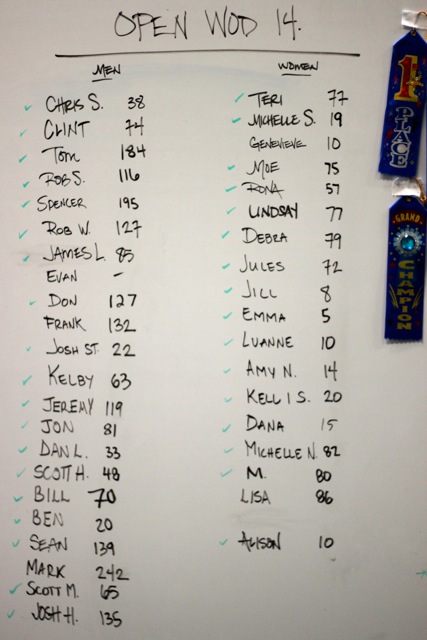 OPEN WOD 14.
MEN
CHRIS S. 38
CLINT 74
TOM 184
ROB S. 116
SPENCER 195
ROB W. 127
JAMES L. 85
EVAN -
DON 127
FRANK 132
JOSH ST. 22
KELBY 63
JEREMY 119
JON 81
DAN L. 33
SCOTT H. 48
BILL 70
BEN 20
SEAN 139
MARK 242
SCOTT M. 65
JOSH H. 135
WOMEN
TERI 77
MICHELLE S. 19
GENEVIEVE 10
MOE 75
RONA 57
LINDSAY 77
DEBRA 79
JULES 72
JILL 8
EMMA 5
LUANNE 10
AMY N. 14
KELLI S. 20
DANA 15
MICHELLE N. 82
M. 80
LISA 86
ALISON 10
1ST
PLACE
GRAND
CHAMPION